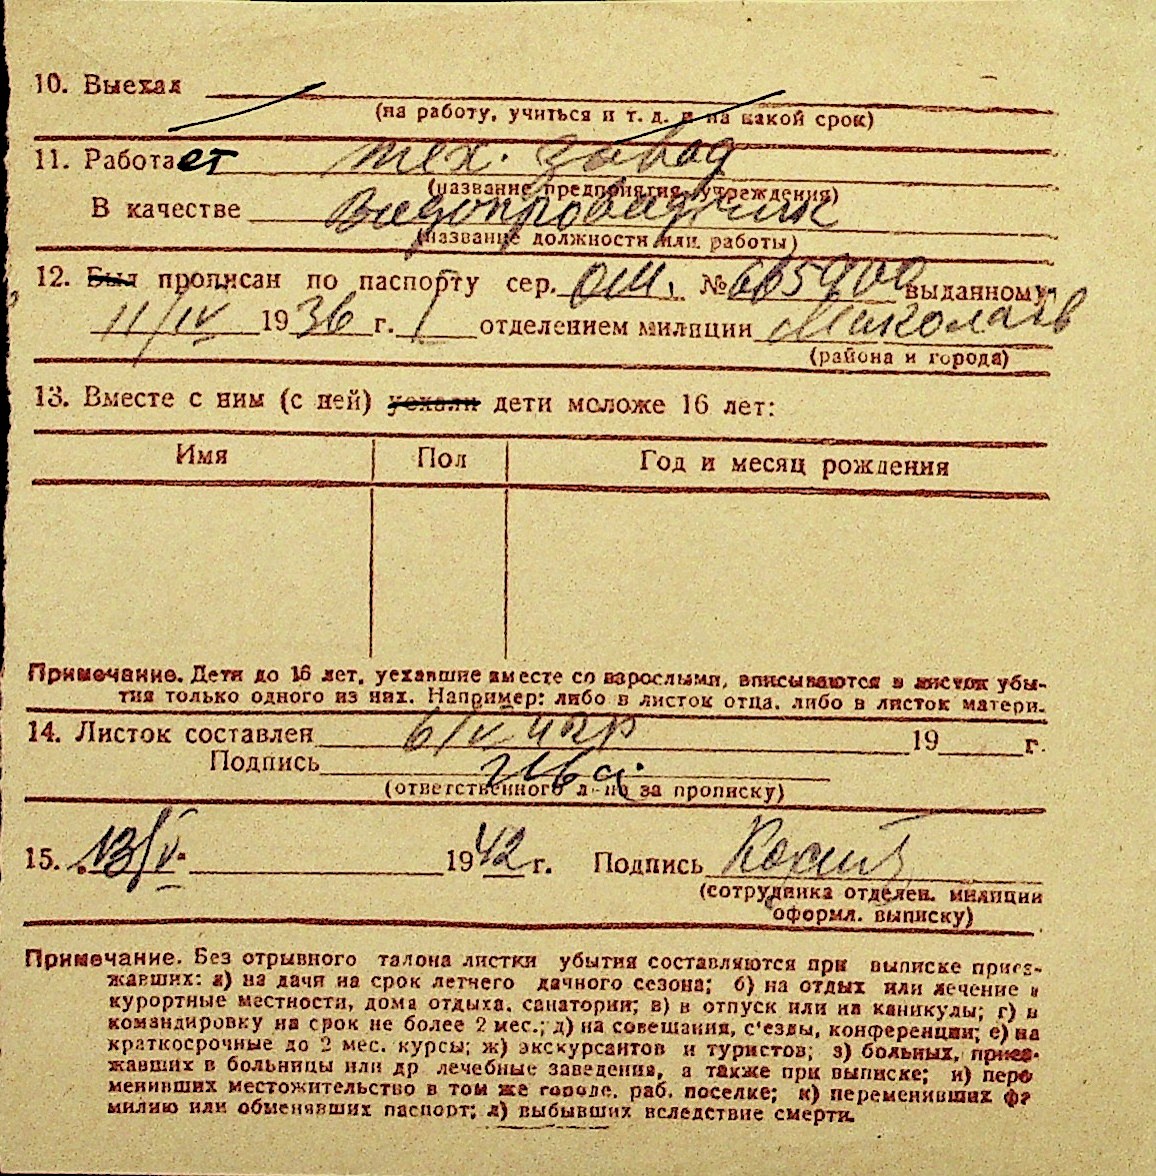 10. Выехал
(на работу, учиться и т. д. и на какой срок)
11. Работает мех. завод
(название предприятия, учреждения)
В качестве Водопроводчик
(название должности или работы)
12. Был прописан по паспорту сер. ОМ. № 665900 выданному
11/IV 1936 г. 1 отделением милиции Миколаїв
(района и города)
13. Вместе с ним (с ней) уехали дети моложе 16 лет:
Имя Пол Год и месяц рождения
Примечание. Дети до 16 лет, уехавшие вместе со взрослыми, вписываются в листок убы-
тия только одного из них. Например: либо в листок отца, либо в листок матери.
14. Листок составлен 6/V 19 г.
Подпись
(ответственного л-ца за прописку)
15. 13/V. 1942 г. Подпись
(сотрудника отделен. милиции
оформл. выписку)
Примечание. Без отрывного талона листки убытия составляются при выписке приез-
жавших: а) на дачи на срок летнего дачного сезона; б) на отдых или лечение в
курортные местности, дома отдыха, санатории; в) в отпуск или на каникулы; г) в
командировку на срок не более 2 мес.; д) на совещания, с'езды, конференции; е) на
краткосрочные до 2 мес. курсы; ж) экскурсантов и туристов; з) больных, приез-
жавших в больницы или др лечебные заведения, а также при выписке; и) пере
менивших местожительство в том же городе, раб. поселке; к) переменивших фа
милию или обменявших паспорт; л) выбывших вследствие смерти.